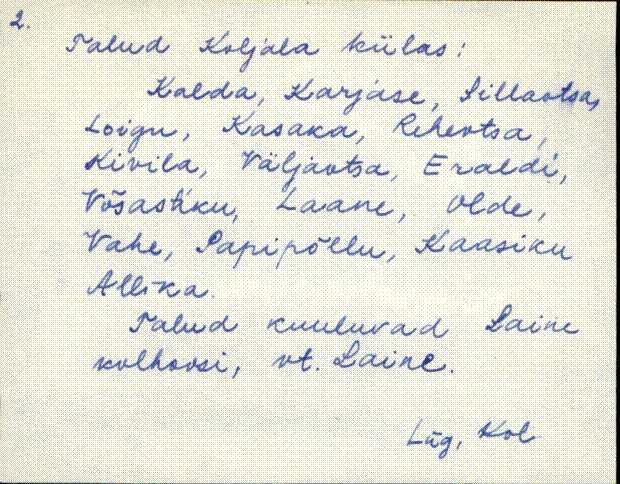 2.
Talud Koljala külas:
Kalda, Karjase, Sillaotsa,
Loigu, Kasaka, Reheotsa,
Kivila, Väljaotsa, Eraldi,
Võsastiku, Laane, Olde,
Vahe, Papipõllu, Kaasiku
Allika.
Talud kuuluvad Laine
kolhoosi, vt. Laine.
Lüg, Kol